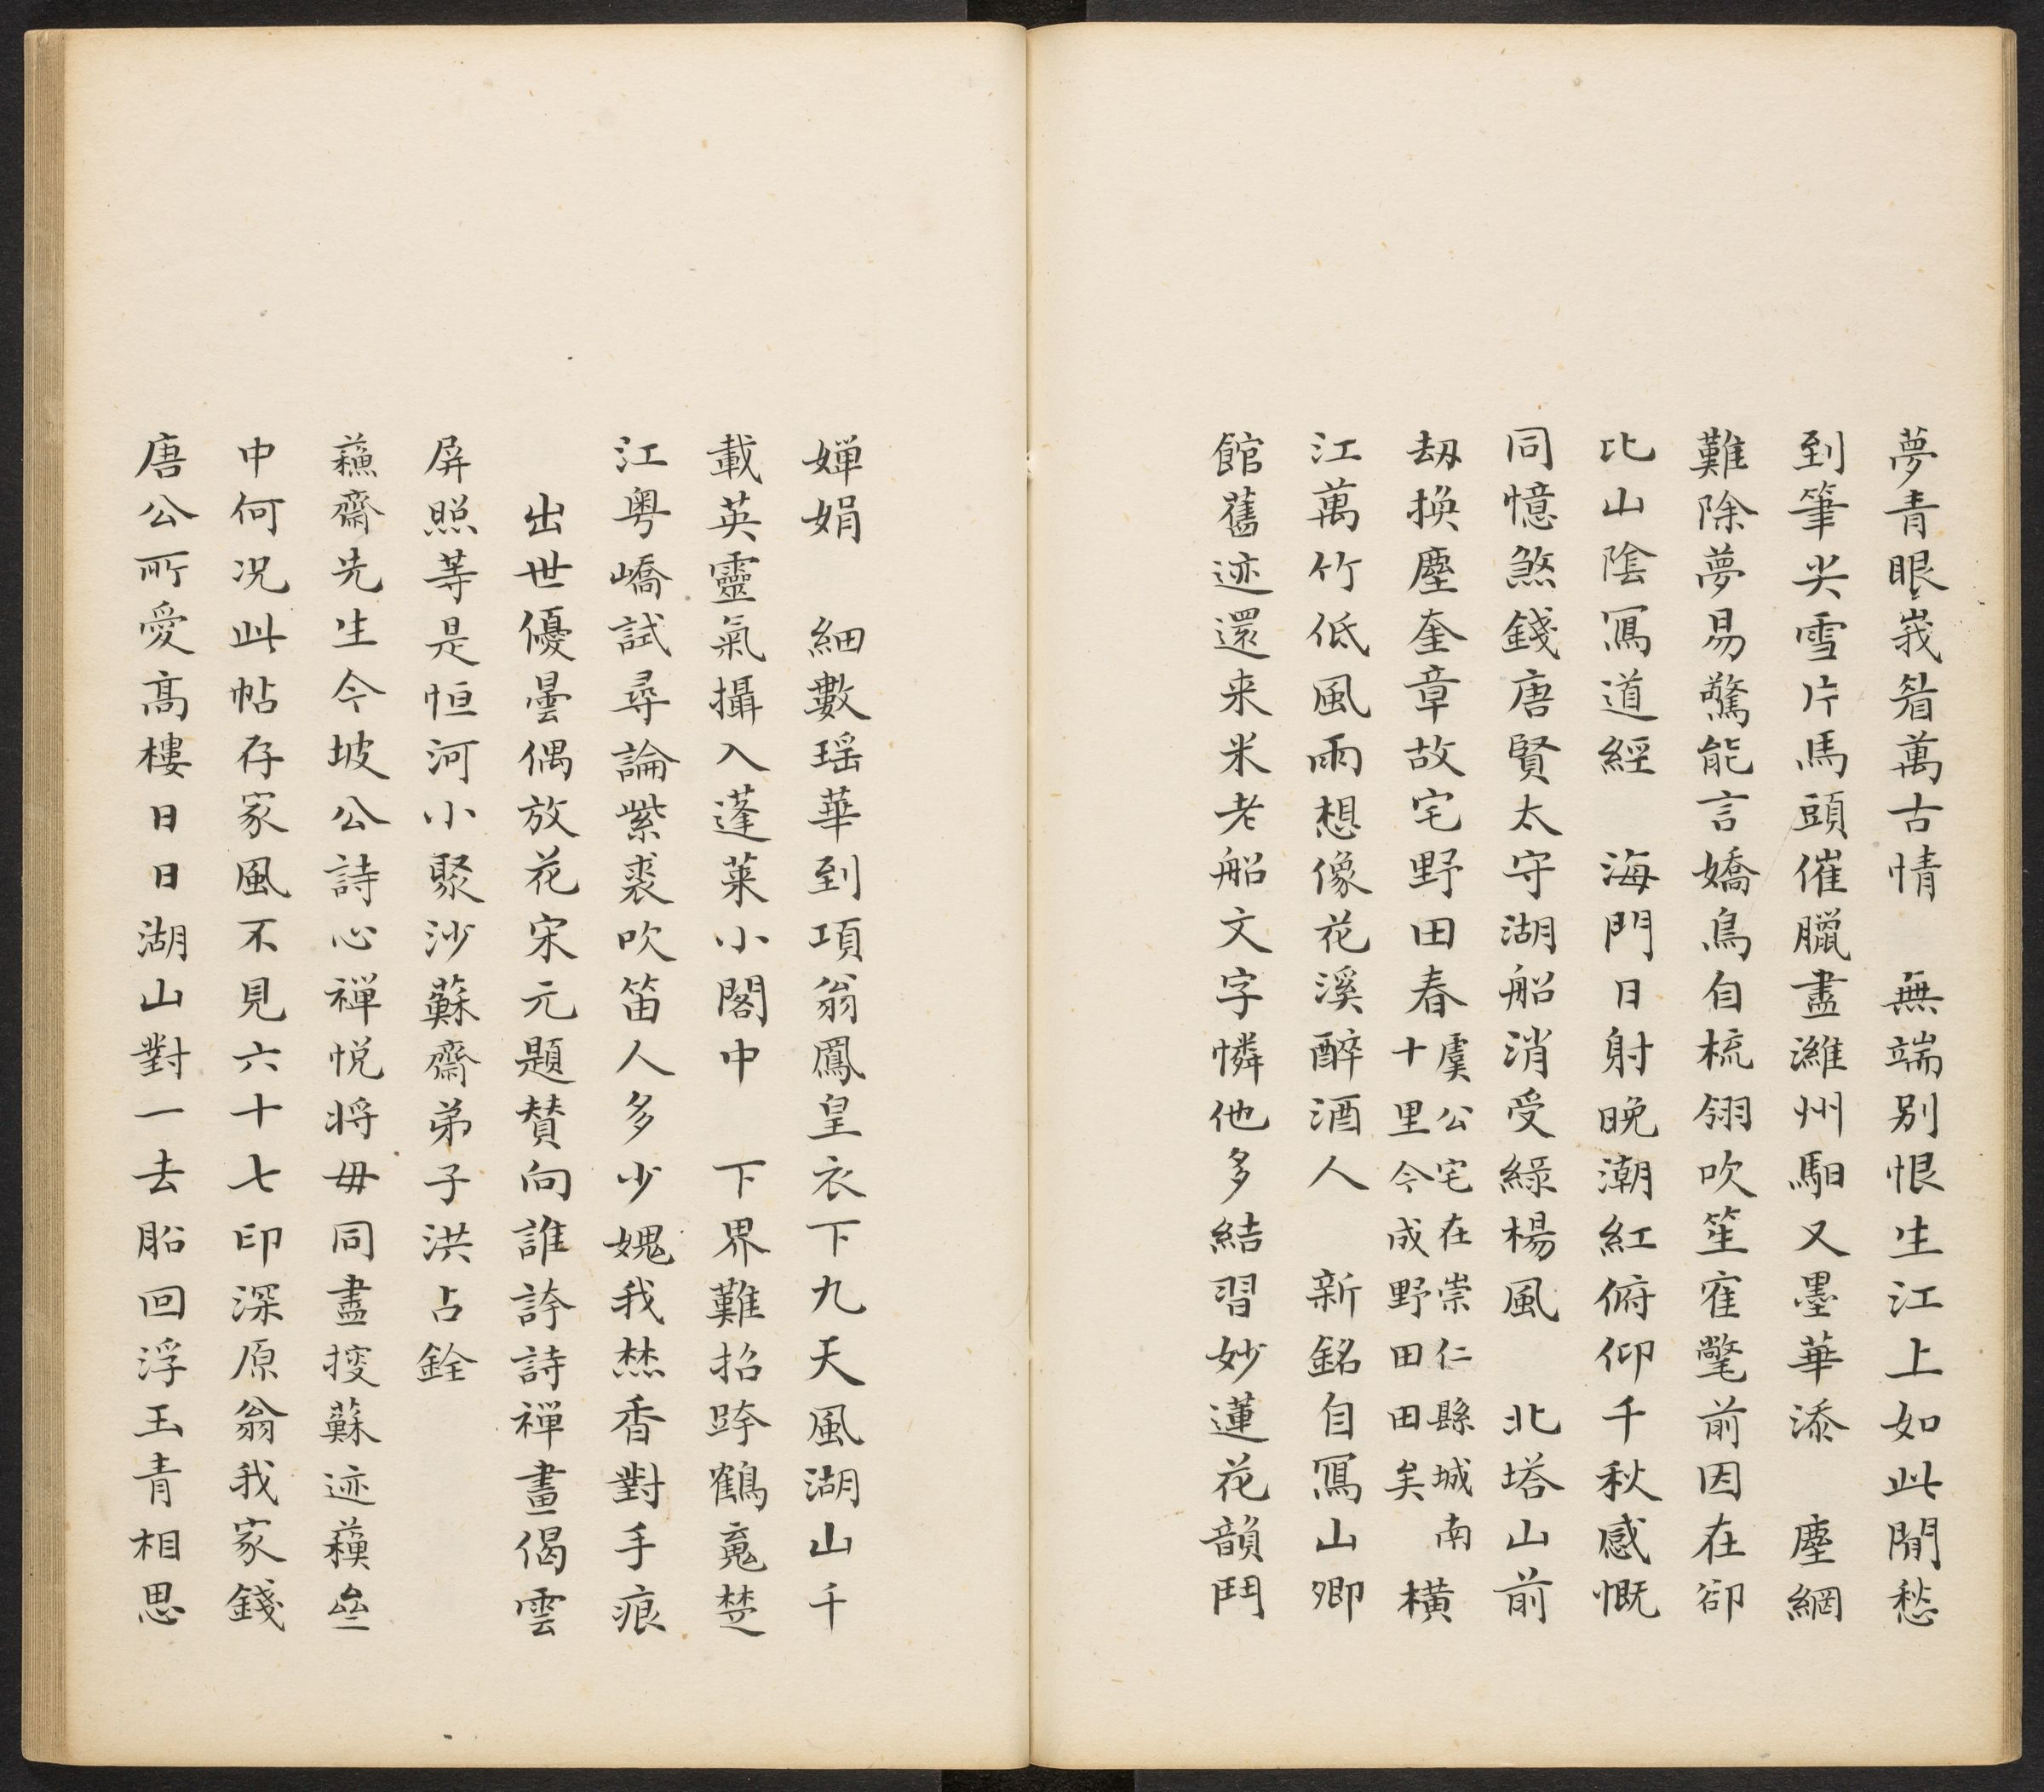 夢青眼峩眉萬古情　無端別恨生江上如此閒愁
到筆尖雪片馬頭催臘盡濰州馹又墨華添　塵網
難除夢易驚能言嬌鳥自梳翎吹笙寉氅前因在卻
比山陰寫道經　海門日射晚潮紅俯仰千秋感慨
同憶煞錢唐賢太守湖船消受綠楊風　北塔山前
劫換塵奎章故宅野田春虞公宅在崇仁縣城南十里今成野田田矣　橫
江萬竹低風雨想像花溪醉酒人　新銘自寫山卿
館舊迹還来米老船文字憐他多結習妙蓮花韻鬥
嬋娟　細數瑶華到項翁鳳皇衣下九天風湖山千
載英靈氣攝入蓬萊小閣中　下界難招跨鶴䰟楚
江粤嶠試尋論紫裘吹笛人多少媿我爇香對手痕
出世優曇偶放花宋元題賛向誰誇詩禪畫偈雲
屏照等是恒河小聚沙蘇齋弟子洪占銓
蘓齋先生今坡公詩心禪悦将毋同盡搜蘇迹蘓亝
中何况此帖存家風不見六十七印深原翁我家錢
唐公所愛高樓日日湖山對一去船回浮玉青相思